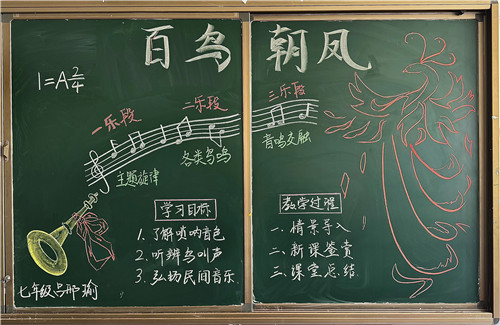 百鸟朝凤
1=A 2/4
一乐段
二乐段
三乐段
主题旋律
各类鸟鸣
音鸣交融
学习目标
1.了解唢呐音色
2.听辨鸟叫声
3.弘扬民间音乐
七年级
教学过程
一.情景导入
二.新课鉴赏
三.课堂总结